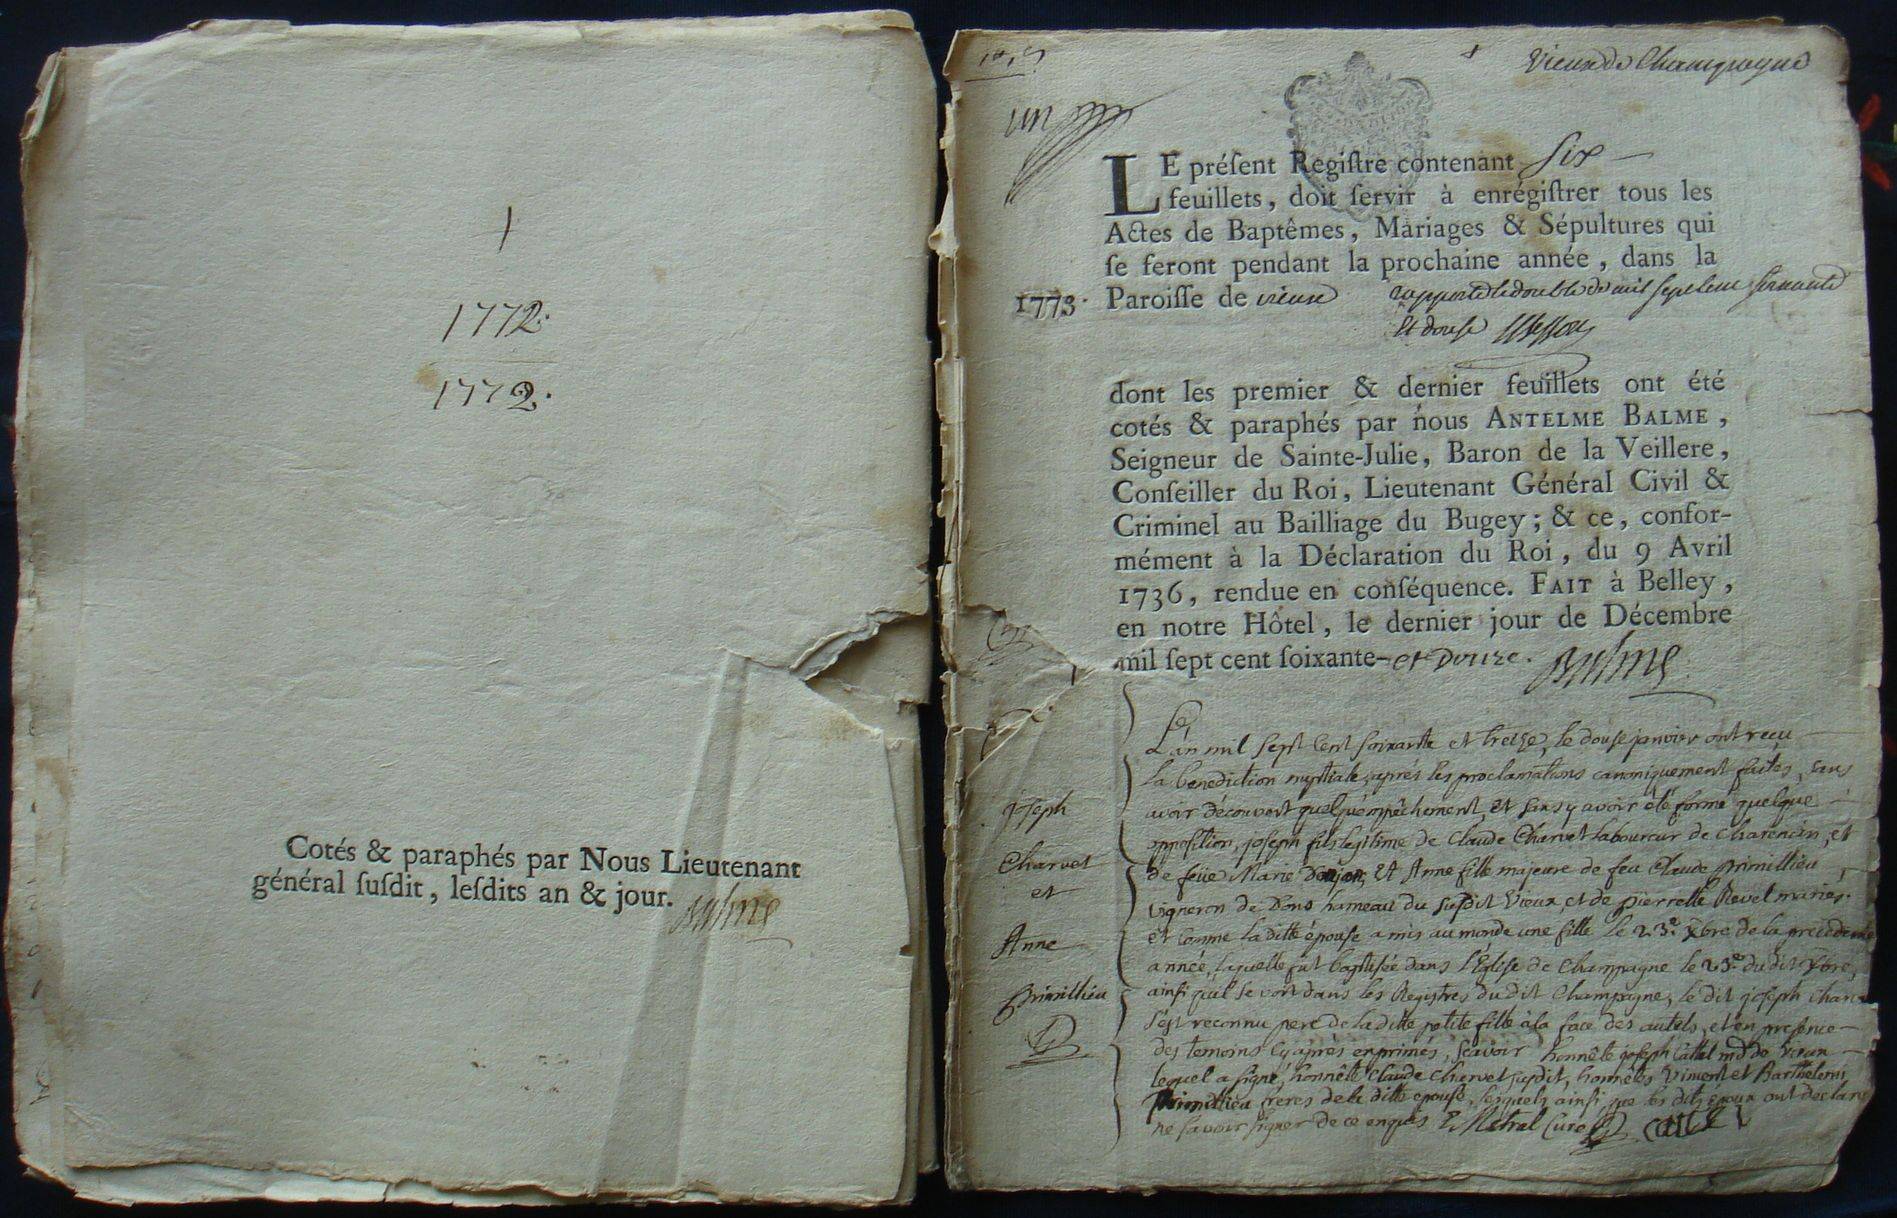 1772.
1772.
Cotés & paraphés par Nous Lieutenant
général ſuſdit, leſdits an & jour. Balme
Vieux de Champagne
un
LE préſent Regiſtre contenant Six
feuillets, doit ſervir à enrégiſtrer tous les
Actes de Baptêmes, Mariages & Sépultures qui
ſe feront pendant la prochaine année, dans la
1773. Paroiſſe de vieux rapporté le double de mil sept cent soixante
et douse
dont les premier & dernier feuillets ont été
cotés & paraphés par nous ANTELME BALME,
Seigneur de Sainte-Julie, Baron de la Veillere,
Conſeiller du Roi, Lieutenant Général Civil &
Criminel au Bailliage du Bugey; & ce, confor-
mément à la Déclaration du Roi, du 9 Avril
1736, rendue en conſéquence. FAIT à Belley,
en notre Hôtel, le dernier jour de Décembre
mil ſept cent ſoixante-et Douze. Balme
Joseph
Charvet
et
Anne
Primillieu
L'an mil sept cent soixante et treize, le douse janvier ont reçu
la benediction nuptiale, aprés les proclamations canoniquement faites, sans
avoir découvert quelqu'empêchement, et sans y avoir été formé quelque
opposition, joseph fils legitime de Claude Charvet laboureur de Charencin, et
de feüe Marie Donjon, et Anne fille majeure de feu Claude Primillieu,
vigneron de Dons hameau du susdit Vieux, et de pierrette Revel mariés.
et comme la ditte épouse a mis au monde une fille le 23.e xbre de la précédente
année, laquelle fut baptisée dans l'Eglise de Champagne le 23.e du dit xbre,
ainsi qu'il se voit dans les Registres du dit Champagne, le dit joseph Char
s'est reconnu pere de la ditte petite fille à la face des autels, et en presence
des temoins cy aprés exprimés, sçavoir honnête joseph Callet md de Vieux
lequel a signé, honnête Claude Charvet susdit, honnêtes Vincent et Barthelemi
Primillieu freres de la ditte epouse, lesquels ainsi que les dits epoux ont déclaré
ne savoir signer de ce enquis Mistral Curé